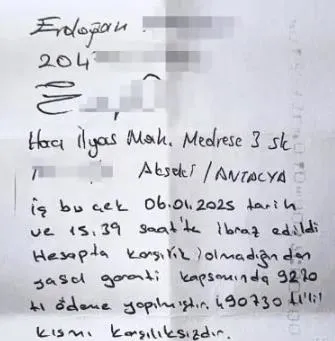 Erdoğan
204
Hacı İlyas Mah. Medrese 3 sk
Akseki / ANTALYA
iş bu çek 06.01.2025 tarih
ve 15.39 saat'te ibraz edildi
Hesapta karşılık olmadığından
yasal garanti kapsamında 9270
tl ödeme yapılmıştır. 490730 tl'lil
kısmı karşılıksızdır.